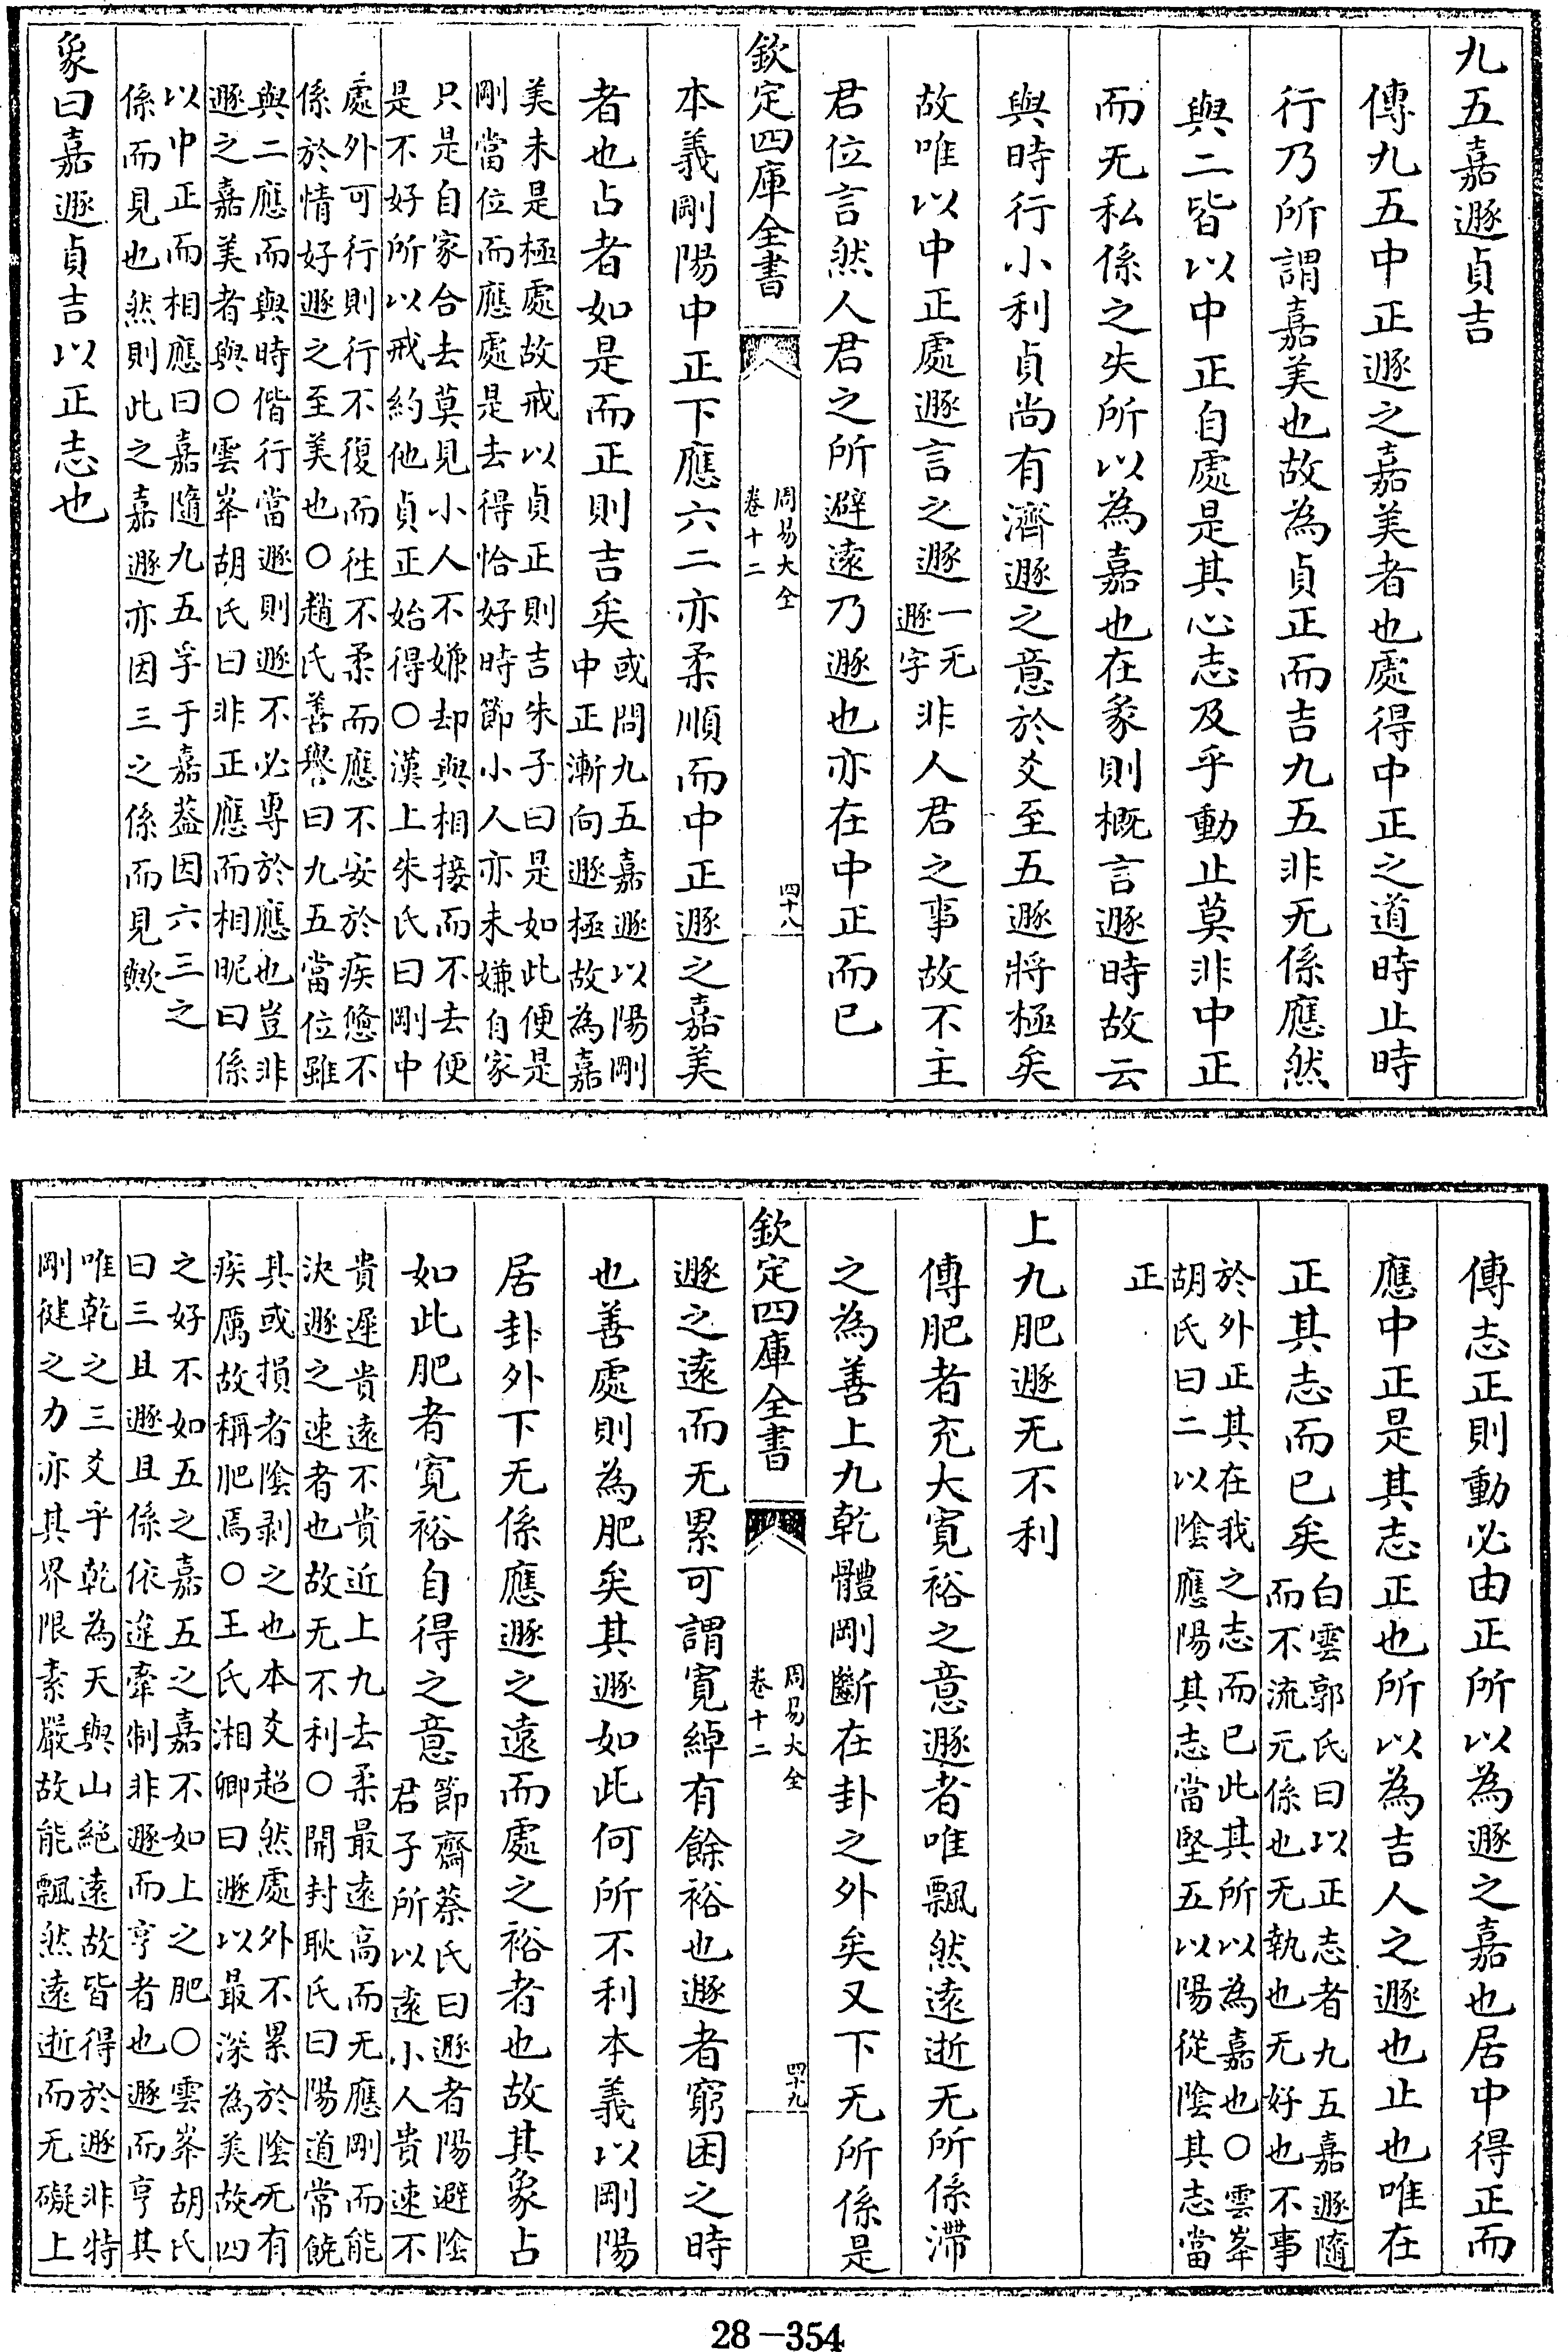 九五嘉遯貞吉
傳九五中正遯之嘉美者也處得中正之道時止時
行乃所謂嘉美也故為貞正而吉九五非无係應然
與二皆以中正自處是其心志及乎動止莫非中正
而无私係之失所以為嘉也在彖則概言遯時故云
與時行小利貞尚有濟遯之意於爻至五遯將極矣
故唯以中正處遯言之遯一无遯字非人君之事故不主
君位言然人君之所避遠乃遯也亦在中正而已
欽定四庫全書 周易大全卷十二 四十八
本義剛陽中正下應六二亦柔順而中正遯之嘉美
者也占者如是而正則吉矣或問九五嘉遯以陽剛
中正漸向遯極故為嘉
美未是極處故戒以貞正則吉朱子曰是如此便是
剛當位而應處是去得恰好時節小人亦未嫌自家
只是自家合去莫見小人不嫌却與相接而不去便
是不好所以戒約他貞正始得○漢上朱氏曰剛中
處外可行則行不復而徃不柔而應不安於疾憊不
係於情好遯之至美也○趙氏善譽曰九五當位雖
與二應而與時偕行當遯則遯不必專於應也豈非
遯之嘉美者與○雲峯胡氏曰非正應而相昵曰係
以中正而相應曰嘉隨九五孚于嘉葢因六三之
係而見也然則此之嘉遯亦因三之係而見歟
象曰嘉遯貞吉以正志也
傳志正則動必由正所以為遯之嘉也居中得正而
應中正是其志正也所以為吉人之遯也止也唯在
正其志而已矣白雲郭氏曰以正志者九五嘉遯隨
而不流无係也无執也无好也不事
於外正其在我之志而已此其所以為嘉也○雲峯
胡氏曰二以陰應陽其志當堅五以陽從陰其志當
正
上九肥遯无不利
傳肥者充大寬裕之意遯者唯飄然遠逝无所係滯
之為善上九乾體剛斷在卦之外矣又下无所係是
欽定四庫全書 周易大全卷十二 四十九
遯之遠而无累可謂寬綽有餘裕也遯者窮困之時
也善處則為肥矣其遯如此何所不利本義以剛陽
居卦外下无係應遯之遠而處之裕者也故其象占
如此肥者寛裕自得之意節齋蔡氏曰遯者陽避陰
君子所以遠小人貴速不
貴遲貴遠不貴近上九去柔最遠高而无應剛而能
決遯之速者也故无不利○開封耿氏曰陽道常饒
其或損者陰剥之也本爻超然處外不累於陰无有
疾厲故稱肥焉○王氏湘卿曰遯以最深為美故四
之好不如五之嘉五之嘉不如上之肥○雲峯胡氏
曰三且遯且係依違牽制非遯而亨者也遯而亨其
唯乾之三爻乎乾為天與山絕遠故皆得於遯非特
剛健之力亦其界限素嚴故能飄然遠逝而无礙上
28-354